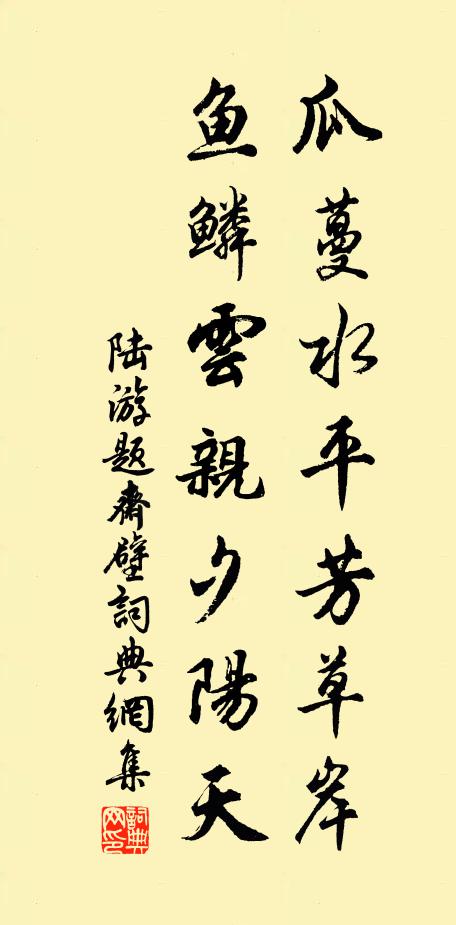 瓜蔓水平芳草岸
鱼鳞雲親夕陽天
陆游题齋壁詞典網集
詞典網印